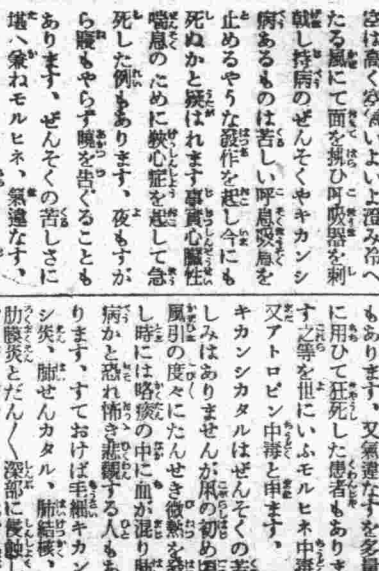 空は高く空氣いよいよ澄み冷へ
たる風にて面を拂ひ呼吸器を刺
戟し持病のぜんそくやキカンシ
病あるものは苦しい呼息吸息を
止めるやうな發作を起し今にも
死ぬかと疑はれます事實心臟性
喘息のために狹心症を起して急
死した例もあります、夜もすが
ら寢もやらず曉を告ぐることも
あります、ぜんそくの苦しさに
堪へ兼ねモルヒネ、氣違なす、
もあります、又氣違なすを多量
に用ひて狂死した患者もありま
す之等を世にいふモルヒネ中毒
又アトロピン中毒と申ます、
キカンシカタルはぜんそくの苦
しみはありませんが風の初め
風引の度々にたんせき微熱を發
し時には喀痰の中に血が混り肺
病かと恐れ怖き悲觀する人もあ
ります、すておけば毛細キカン
シ炎、肺せんカタル、肺結核、
肋膜炎とだん〱深部に侵蝕し